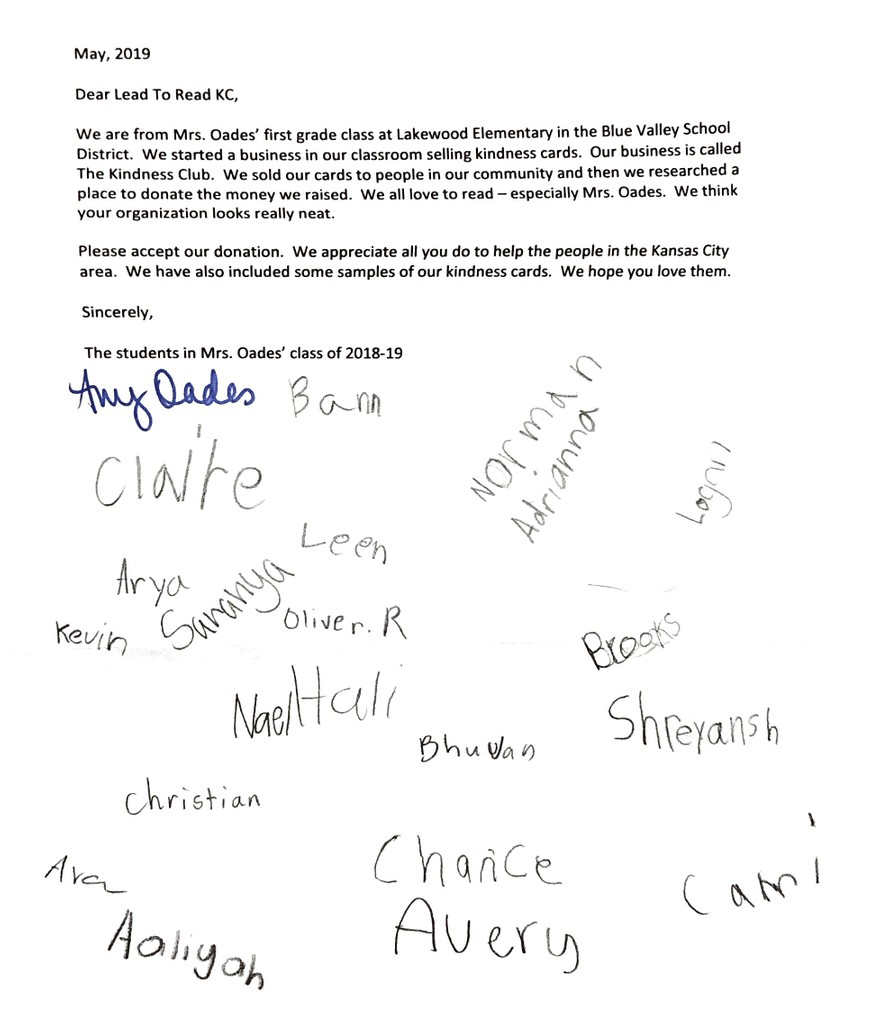 May, 2019
Dear Lead To Read KC,
We are from Mrs. Oades’ first grade class at Lakewood Elementary in the Blue Valley School
District.  We started a business in our classroom selling kindness cards.  Our business is called
The Kindness Club.  We sold our cards to people in our community and then we researched a
place to donate the money we raised.  We all love to read – especially Mrs. Oades.  We think
your organization looks really neat.
Please accept our donation.  We appreciate all you do to help the people in the Kansas City
area.  We have also included some samples of our kindness cards.  We hope you love them.
Sincerely,
The students in Mrs. Oades’ class of 2018-19
Amy Oades
Norman
Adrianna
Claire
Leen
Arya
Saranya
Oliver. R
Kevin
Brooks
Nael
Hali
Shreyansh
Bhuvan
Christian
Chance
Cami
Ava
Avery
Aaliyah